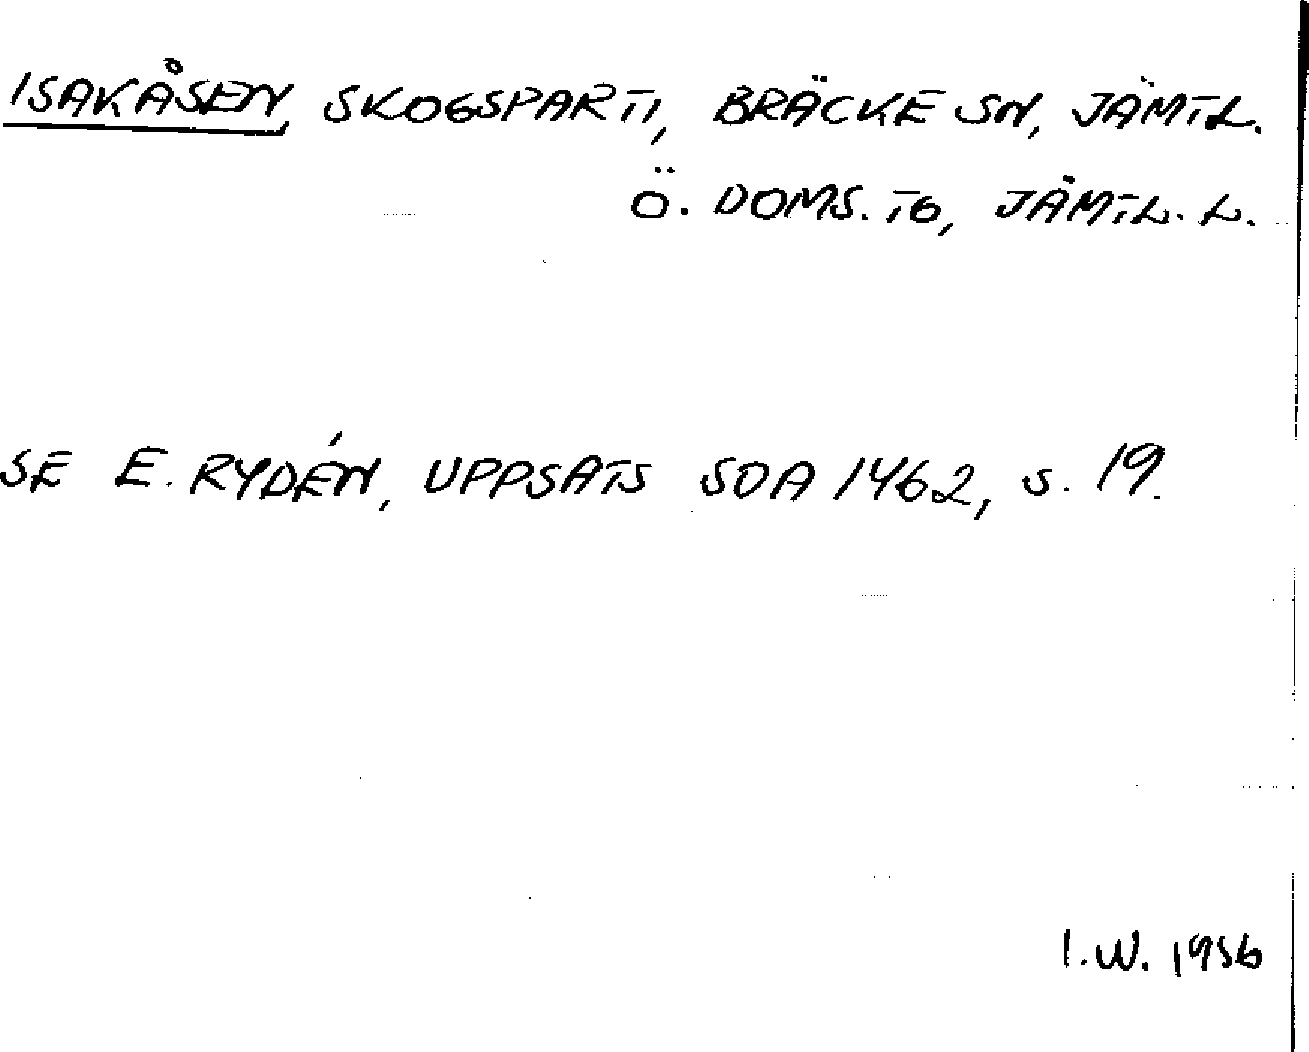 ISAKÅSEN, SKOGSPARTI, BRÄCKE SN, JÄMTL.
Ö. DOMS. TG, JÄMTL. L.
SE E. RYDÉN, UPPSATS SOA 1462, s. 19.
I.W. 1956